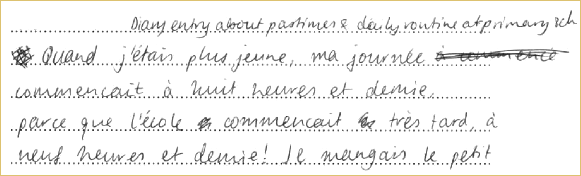 Diary entry about pastimes & daily routine at primary sch
Quand j'étais plus jeune, ma journée
commencait à huit heures et demie.
parce que l'école commencait très tard, à
neuf heures et demie! Je mangais le petit